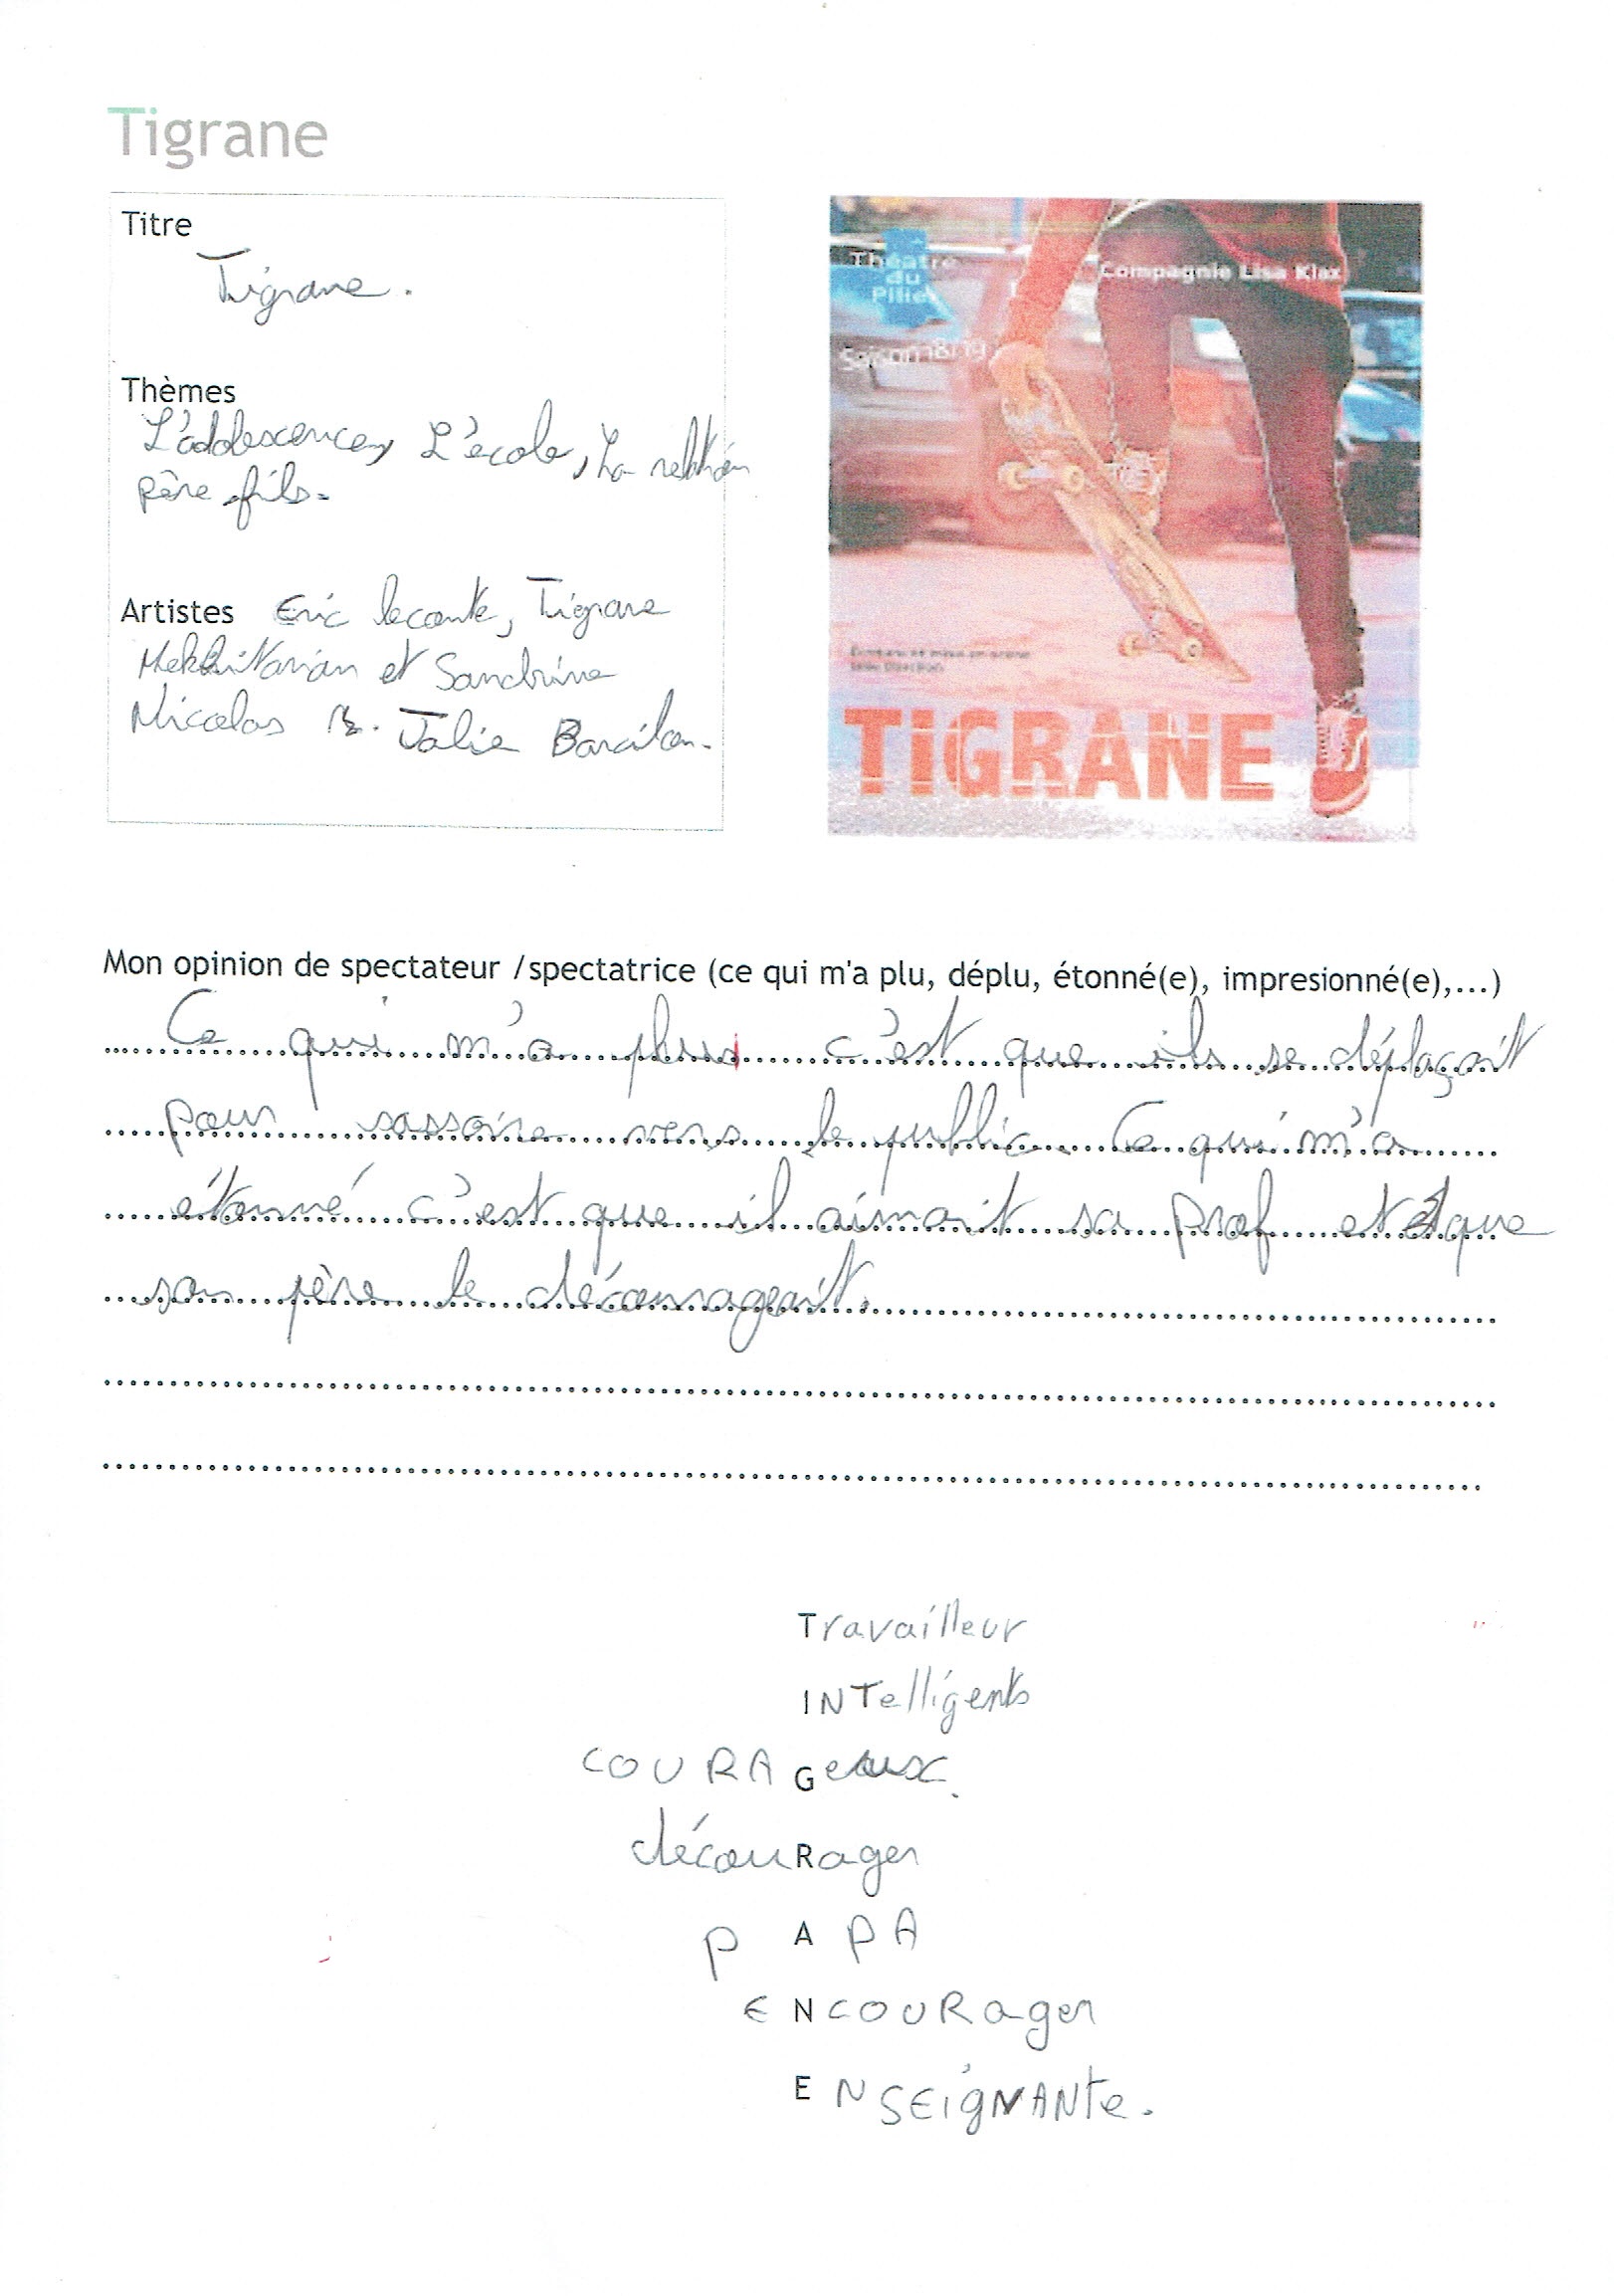 Tigrane
Titre
Tigrane.
Thèmes
L'adolescence, L'école, La relation
père fils.
Artistes Eric leconte, Tigrane
Mekhitarian et Sandrine
Nicolas
Julie Barcilon.
Théâtre
du
Pilier
Compagnie Lisa Klax
TIGRANE
Mon opinion de spectateur /spectatrice (ce qui m'a plu, déplu, étonné(e), impresionné(e),...)
Ce qui m'a plus c'est que ils se déplaçait
pour sassoire vers le public. Ce qui m'a
étonné c'est que il aimait sa prof et que
son père le décourageait.
Travailleur
INTelligents
COURAGeux.
découRager
PAPA
ENCOURager
ENSEIGNANte.